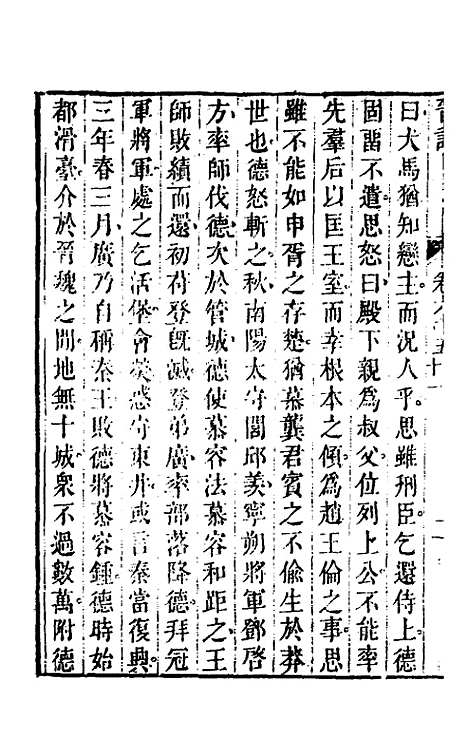 曰犬馬猶知戀主而況人乎思雖刑臣乞還侍上德
固留不遣思怒曰殿下親為叔父位列上公不能率
先羣后以匡王室而幸根本之傾為趙王倫之事思
雖不能如申胥之存楚猶慕龔君賓之不偸生於莽
世也德怒斬之秋南陽太守閭邱羨寧朔將軍鄧啓
方率師伐德次於管城德使慕容法慕容和距之王
師敗績而還初苻登旣滅登弟廣率部落降德拜冠
軍將軍處之乞活堡會熒惑守東井或言秦當復興
三年春三月廣乃自稱秦王敗德將慕容鍾德時始
都滑臺介於晉魏之間地無十城衆不過數萬附德